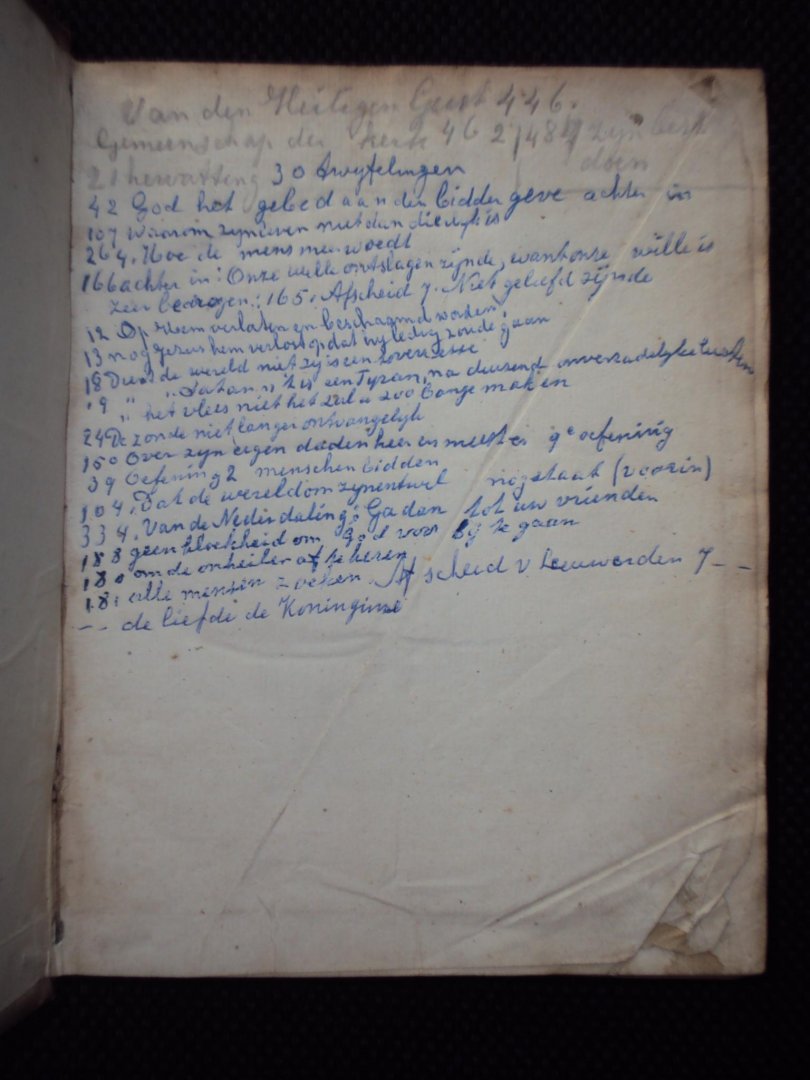 Van den Heiligen Geest 446.
Gemeenschap der kerk 46 2/484 zyn
doen
21 hervatting 30 twyfelingen
42 God het gebed aan den bidder geve achter in
107 waarom
264. Hoe de mens
166 achter in: Onze wille ontslagen zijnde, want onze wille is
zeer bedrogen: 165. Afscheid 7. Niet geliefd zijnde
12 Op hem verlaten en beschaamd worden!
13 nog Jezus hem verlost opdat hy ledig zoude gaan
18 Dient de wereld niet zy is een tovenaresse
19 " "Satan" 't is een Tyran, na duizend onverzadelyke
" " het vlees niet het zal u zoo bange maken
24 De zonde niet langer ontvangelyk
150 Over zyn eigen daden heer en meester 9e oefening
39 Oefening 2 menschen bidden
104. Dat de wereld om zynentwil nog staat (voorin)
334. Van de Nederdaling: Ga dan tot uw vrienden
188 geen kloekheid om God voor by te gaan
180 om de onheilen af te keren
181 alle mensen zoeken. Afscheid v Leeuwarden 7 - -
-- de liefde de Koninginne